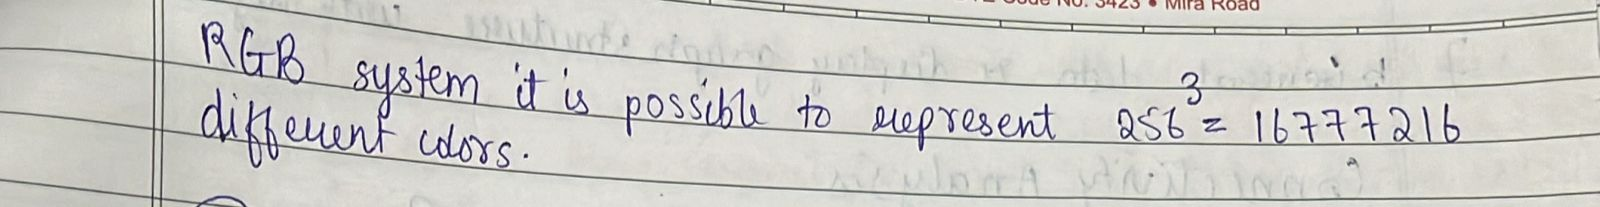 No. 3423 • Mira Road
RGB system it is possible to represent 256³ = 16777216
different colors.